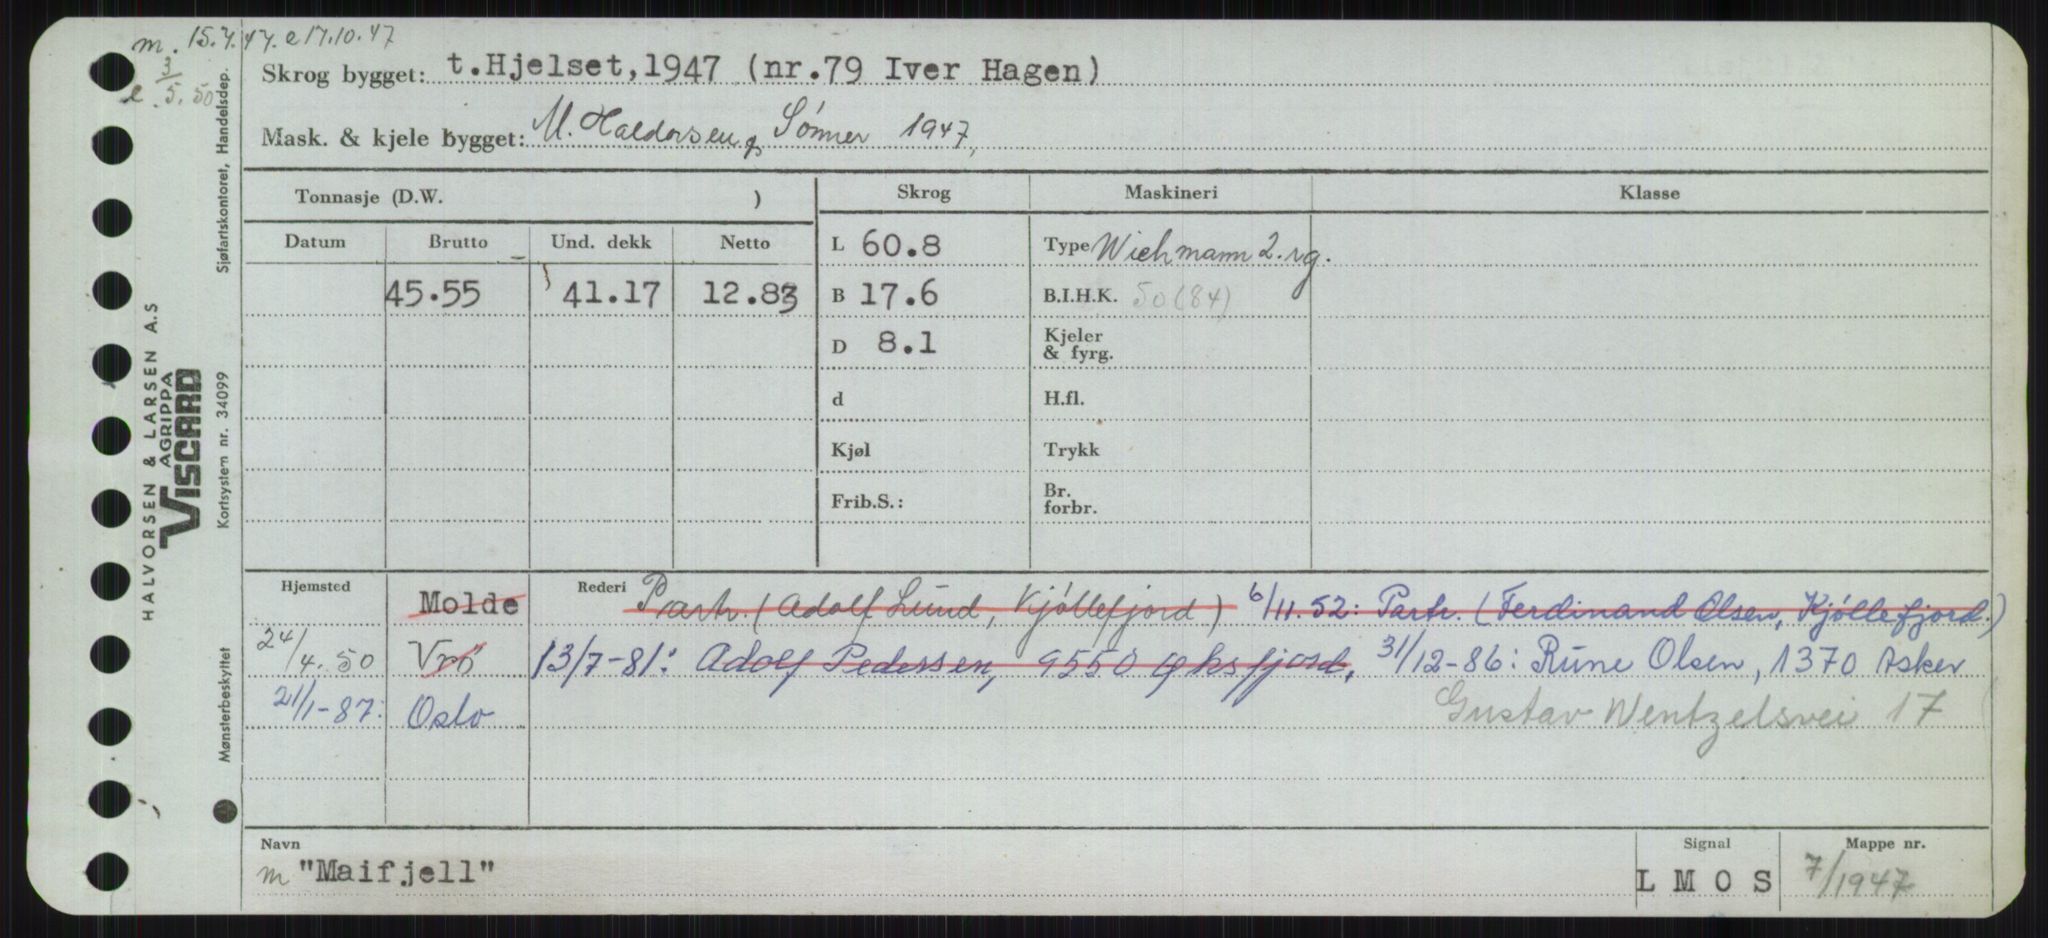 m. 15.7.47. e 17.10.47
e. 3/5.50
Skrog bygget: t.Hjelset, 1947 (nr.79 Iver Hagen)
Mask. & kjele bygget: M. Haldorsen & Sønner 1947,
Tonnasje (D.W. )
Skrog Maskineri Klasse
Datum Brutto Und. dekk Netto
L 60.8 Type Wichmann 2. rg.
45.55 41.17 12.83
B 17.6 B.I.H.K. 50 (84)
D 8.1 Kjeler & fyrg.
d H.fl.
Kjøl Trykk
Frib.S.: Br. forbr.
Hjemsted Molde Rederi Partr. (Adolf Lund, Kjøllefjord) 6/11.52: Partr. (Ferdinand Olsen, Kjøllefjord.)
24/4.50 Vrø 13/7-81: Adolf Pedersen, 9550 Øksfjord, 31/12-86: Rune Olsen, 1370 Asker
21/1-87: Oslo Gustav Wentzelsvei 17
Navn Signal Mappe nr.
m "Maifjell" L M O S 7/1947
HALVORSEN & LARSEN A.S
AGRIPPA
VISCARD
Mønsterbeskyttet Kortsystem nr. 34099 Sjøfartskontoret, Handelsdep.